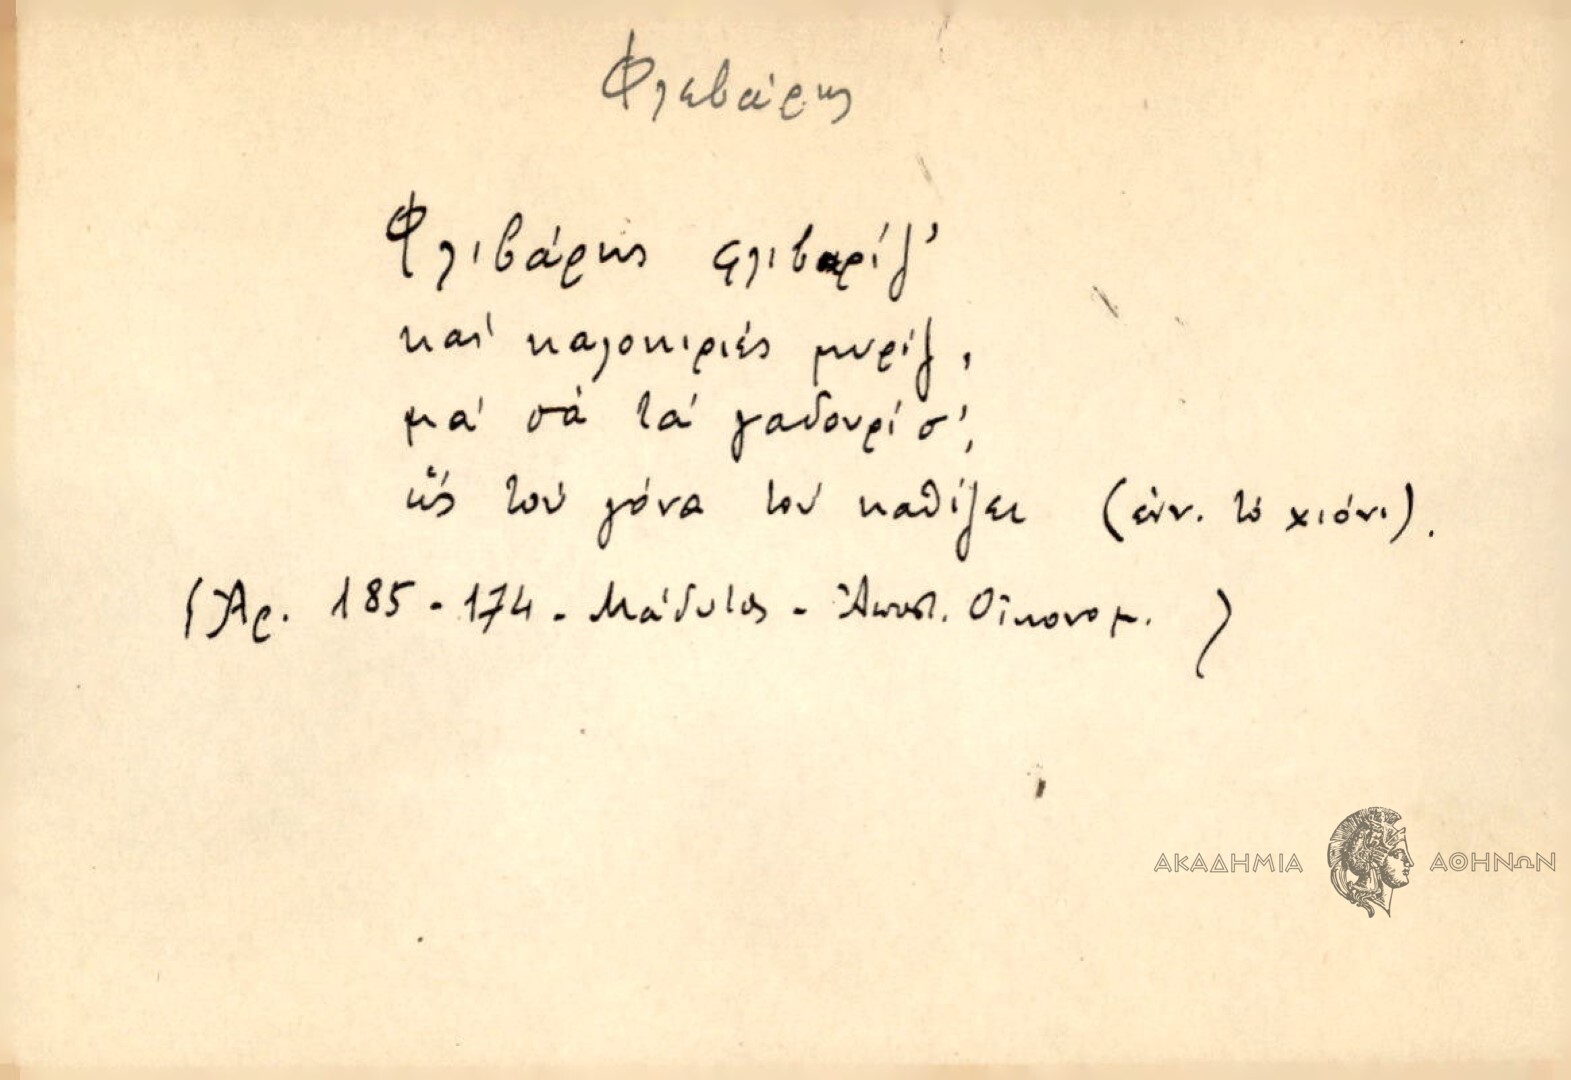 Φλεβάρης
Φλιβάρης φλιβαρίζ'
καὶ καλοκιριές μυρίζ,
μὰ σὰ τὰ γαδουρίσ',
ὥς τοὺ γόνα τοὺ καθίζει (ενν. τὸ χιόνι).
(Ἀρ. 185 - 174 - Μάδυτος - Ἀποστ. Οἰκονομ. )
ΑΚΑΔΗΜΙΑ ΑΘΗΝΩΝ